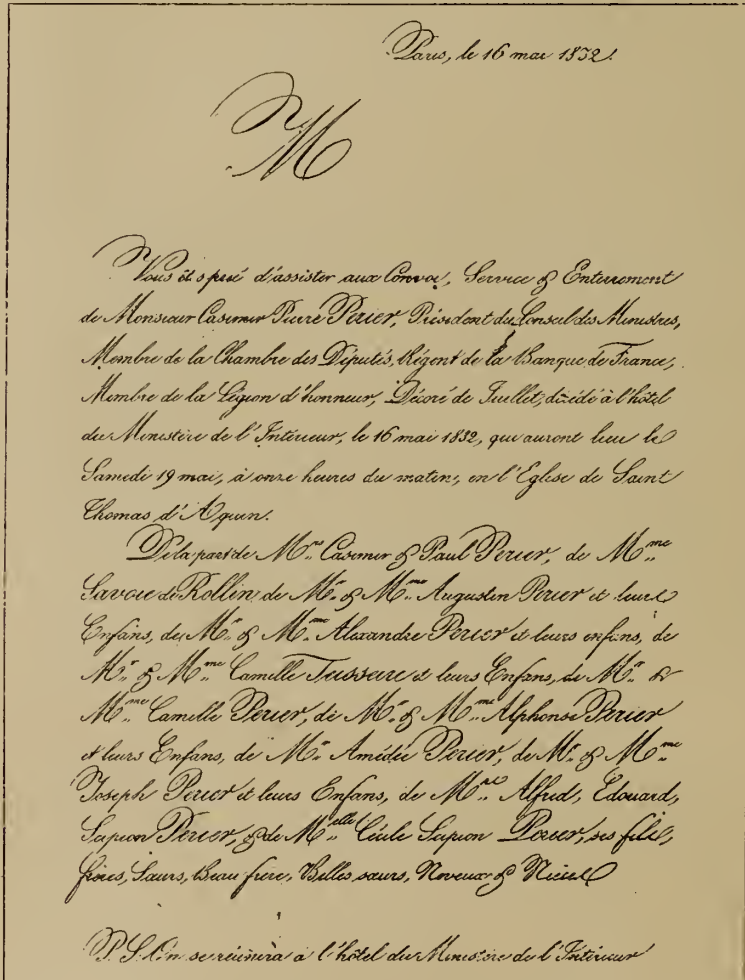 Paris, le 16 mai 1832.
M
Vous êtes prié d'assister aux Convoi, Service & Enterrement
de Monsieur Casimir Pierre Perier, Président du Conseil des Ministres,
Membre de la Chambre des Députés, Régent de la Banque de France,
Membre de la Légion d'honneur, Décoré de Juillet, décédé à l'hôtel
du Ministère de l'Intérieur, le 16 mai 1832, qui auront lieu le
Samedi 19 mai, à onze heures du matin, en l'Eglise de Saint
Thomas d'Aquin.
De la part de M.rs Casimir & Paul Perier, de M.me
Savoie de Rollin, de M.r & M.me Augustin Perier et leurs
Enfans, de M.r & M.me Alexandre Perier et leurs enfans, de
M.r & M.me Camille Teisseire et leurs Enfans, de M.r &
M.me Camille Perier, de M.r & M.me Alphonse Perier
et leurs Enfans, de M.r Amédée Perier, de M.r & M.me
Joseph Perier et leurs Enfans, de M.rs Alfred, Edouard,
Perier, & de M.elle Cécile Perier, ses fils,
frères, Sœurs, Beau frère, Belles sœurs, Neveux & Nièces
P.S. On se réunira à l'hôtel du Ministère de l'Intérieur